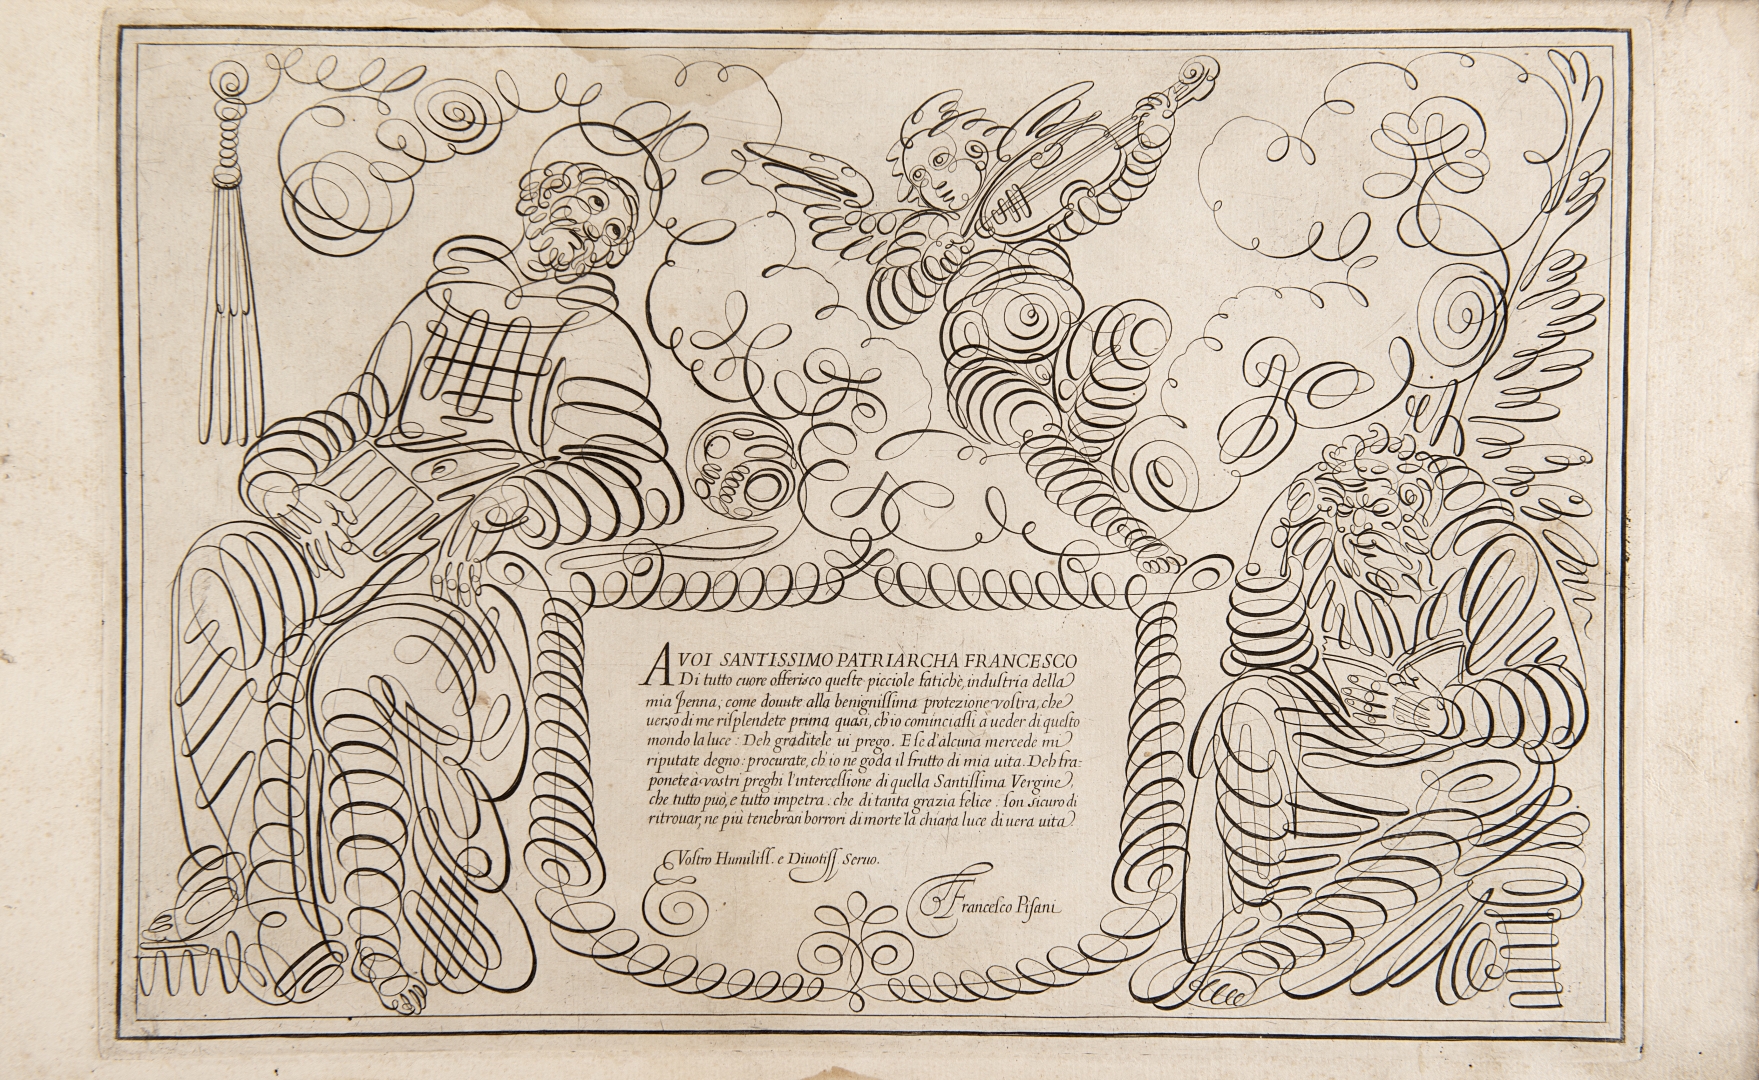 A VOI SANTISSIMO PATRIARCHA FRANCESCO
Di tutto cuore offerisco queste picciole fatiche, industria della
mia penna, come douute alla benignissima protezione vostra, che
uerso di me risplendete prima quasi, ch'io cominciassi a ueder di questo
mondo la luce: Deh graditele ui prego. E se d'alcuna mercede mi
riputate degno: procurate, ch'io ne goda il frutto di mia uita. Deh fra-
ponete à vostri preghi l'intercessione di quella Santissima Vergine,
che tutto può, e tutto impetra. che di tanta grazia felice: son sicuro di
ritrouar, ne più tenebrosi horrori di morte la chiara luce di uera uita.
Vostro Humiliss. e Diuotiss. Seruo.
Francesco Pisani